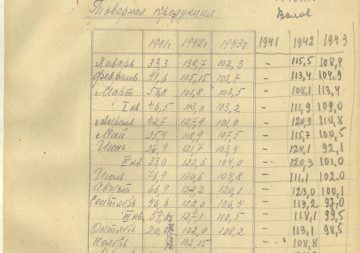 Товарная продукция
Валов
1941г. 1942г. 1943г. 1941 1942 1943
Январь 33,3 102,3 - 115,5 108,4
Февраль 41,6 105,15 102,7 - 113,4 104,9
Март 101,8 103,5 - 108,1 113,4
I кв. 46,5 103,0 103,2 - 111,9 109,0
Апрель 42,7 127,9 101,0 - 120,9 110,8
Май 25,4 118,9 107,5 - 115,7 100,5
Июнь 121,7 103,4 - 124,1 92,1
II кв. 33,0 122,6 104,0 - 120,3 101,0
Июль 76,9 110,6 104,8 - 111,1 102,0
Август 66,9 127,2 120,1 - 123,0 100,1
Сентябрь 46,6 122,0 106,4 - 119,2 97,0
III кв. 127,1 110,5 - 118,1 99,5
Октябрь 102,0 108,2 - 113,1 98,5
Ноябрь 112,15 - 108,8